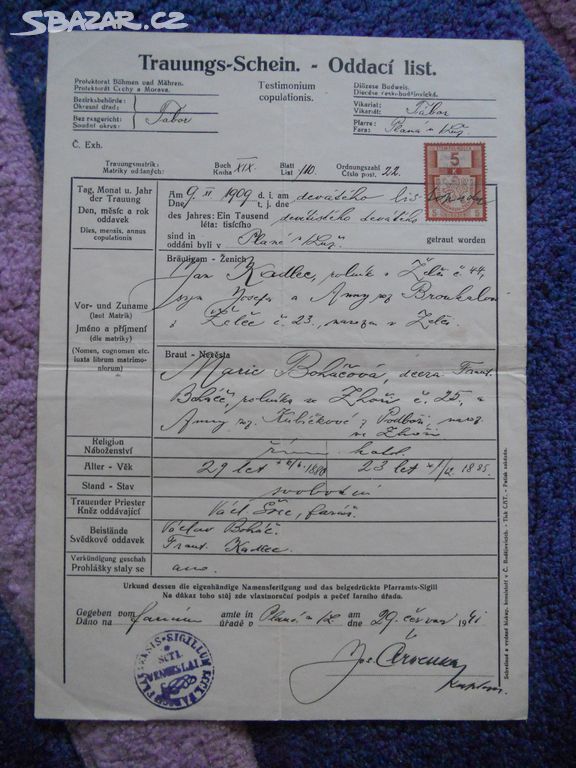 SBAZAR.CZ
Trauungs-Schein. - Oddací list.
Protektorat Böhmen und Mähren.
Protektorát Čechy a Morava.
Bezirksbehörde:
Okresní úřad: Tábor
Bezirksgericht:
Soudní okres: Tábor
Testimonium
copulationis.
Diözese Budweis.
Diecése česko-budějovická.
Vikariat:
Vikariát: Tábor
Pfarre:
Fara: Planá n/Luž.
Č. Exh.
5
K
5 5
Trauungsmatrik:
Matriky oddaných:
Buch
Kniha XIX.
Blatt
List 110.
Ordnungszahl
Číslo post. 22.
Tag, Monat u. Jahr
der Trauung
Den, měsíc a rok
oddavek
Dies, mensis, annus
copulationis
Am
Dne 9. XI 1909 d. i. am
t. j. dne devátého listopadu
des Jahres: Ein Tausend
léta: tisícího devítistého devátého
sind in
oddáni byli v Plané n/Luž. getraut worden
Vor- und Zuname
(laut Matrik)
Jméno a příjmení
(dle matriky)
(Nomen, cognomen etc.
iuxta librum matrimo-
niorum)
Bräutigam - Ženich
Jan Kadlec, rolník v Želči č 44,
syn Josefa a Anny roz Broukalové
z Želče č. 23., narozen v Želči.
Braut - Nevěsta
Marie Boháčová, dcera Frant.
Boháče, rolníka ve Zhoři č. 25, a
Anny roz. Kubičkové z Podboží, naroz.
ve Zhoři
Religion
Náboženství řím. katol.
Alter - Věk 29 let 1880 23 let 1885.
Stand - Stav svobodní
Trauender Priester
Kněz oddávající Václ. farář.
Beistände
Svědkové oddavek
Václav Boháč.
Frant. Kadlec.
Verkündigung geschah
Prohlášky staly se ano.
Urkund dessen die eigenhändige Namensfertigung und das beigedrückte Pfarramts-Sigill
Na důkaz toho stůj zde vlastnoruční podpis a pečeť farního úřadu.
Gegeben vom
Dáno na farním amte in
úřadě v Plané n/L. am
dne 29. června 1941
SIGILLUM
SCTI.
VENCESLAI
Jos. Červenka
kaplan.